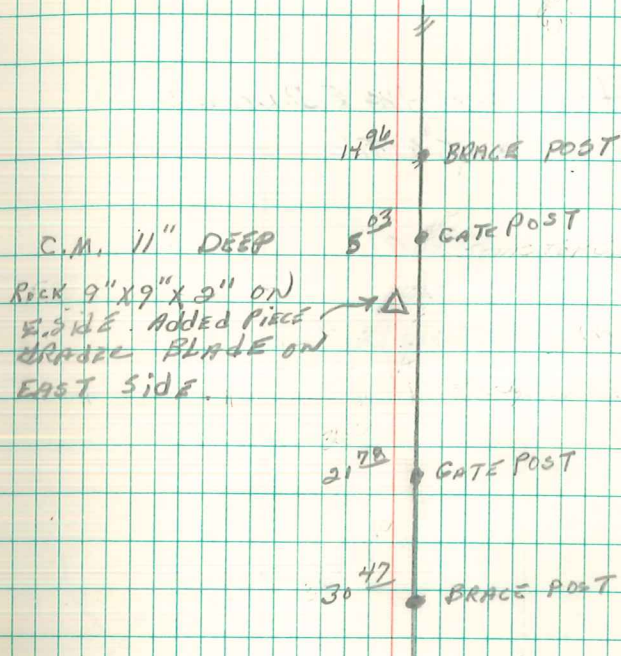 14 96 BRACE POST
5 03 GATE POST
C.M. 11" DEEP
ROCK 9"X9"X2" ON
E.SIDE. ADDED PIECE
GRADER BLADE ON
EAST SIDE.
21 78 GATE POST
30 47 BRACE POST